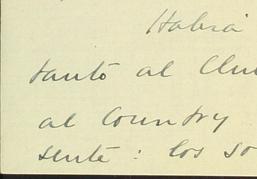 Habia
tanto al Clu
al Country
sente: los so